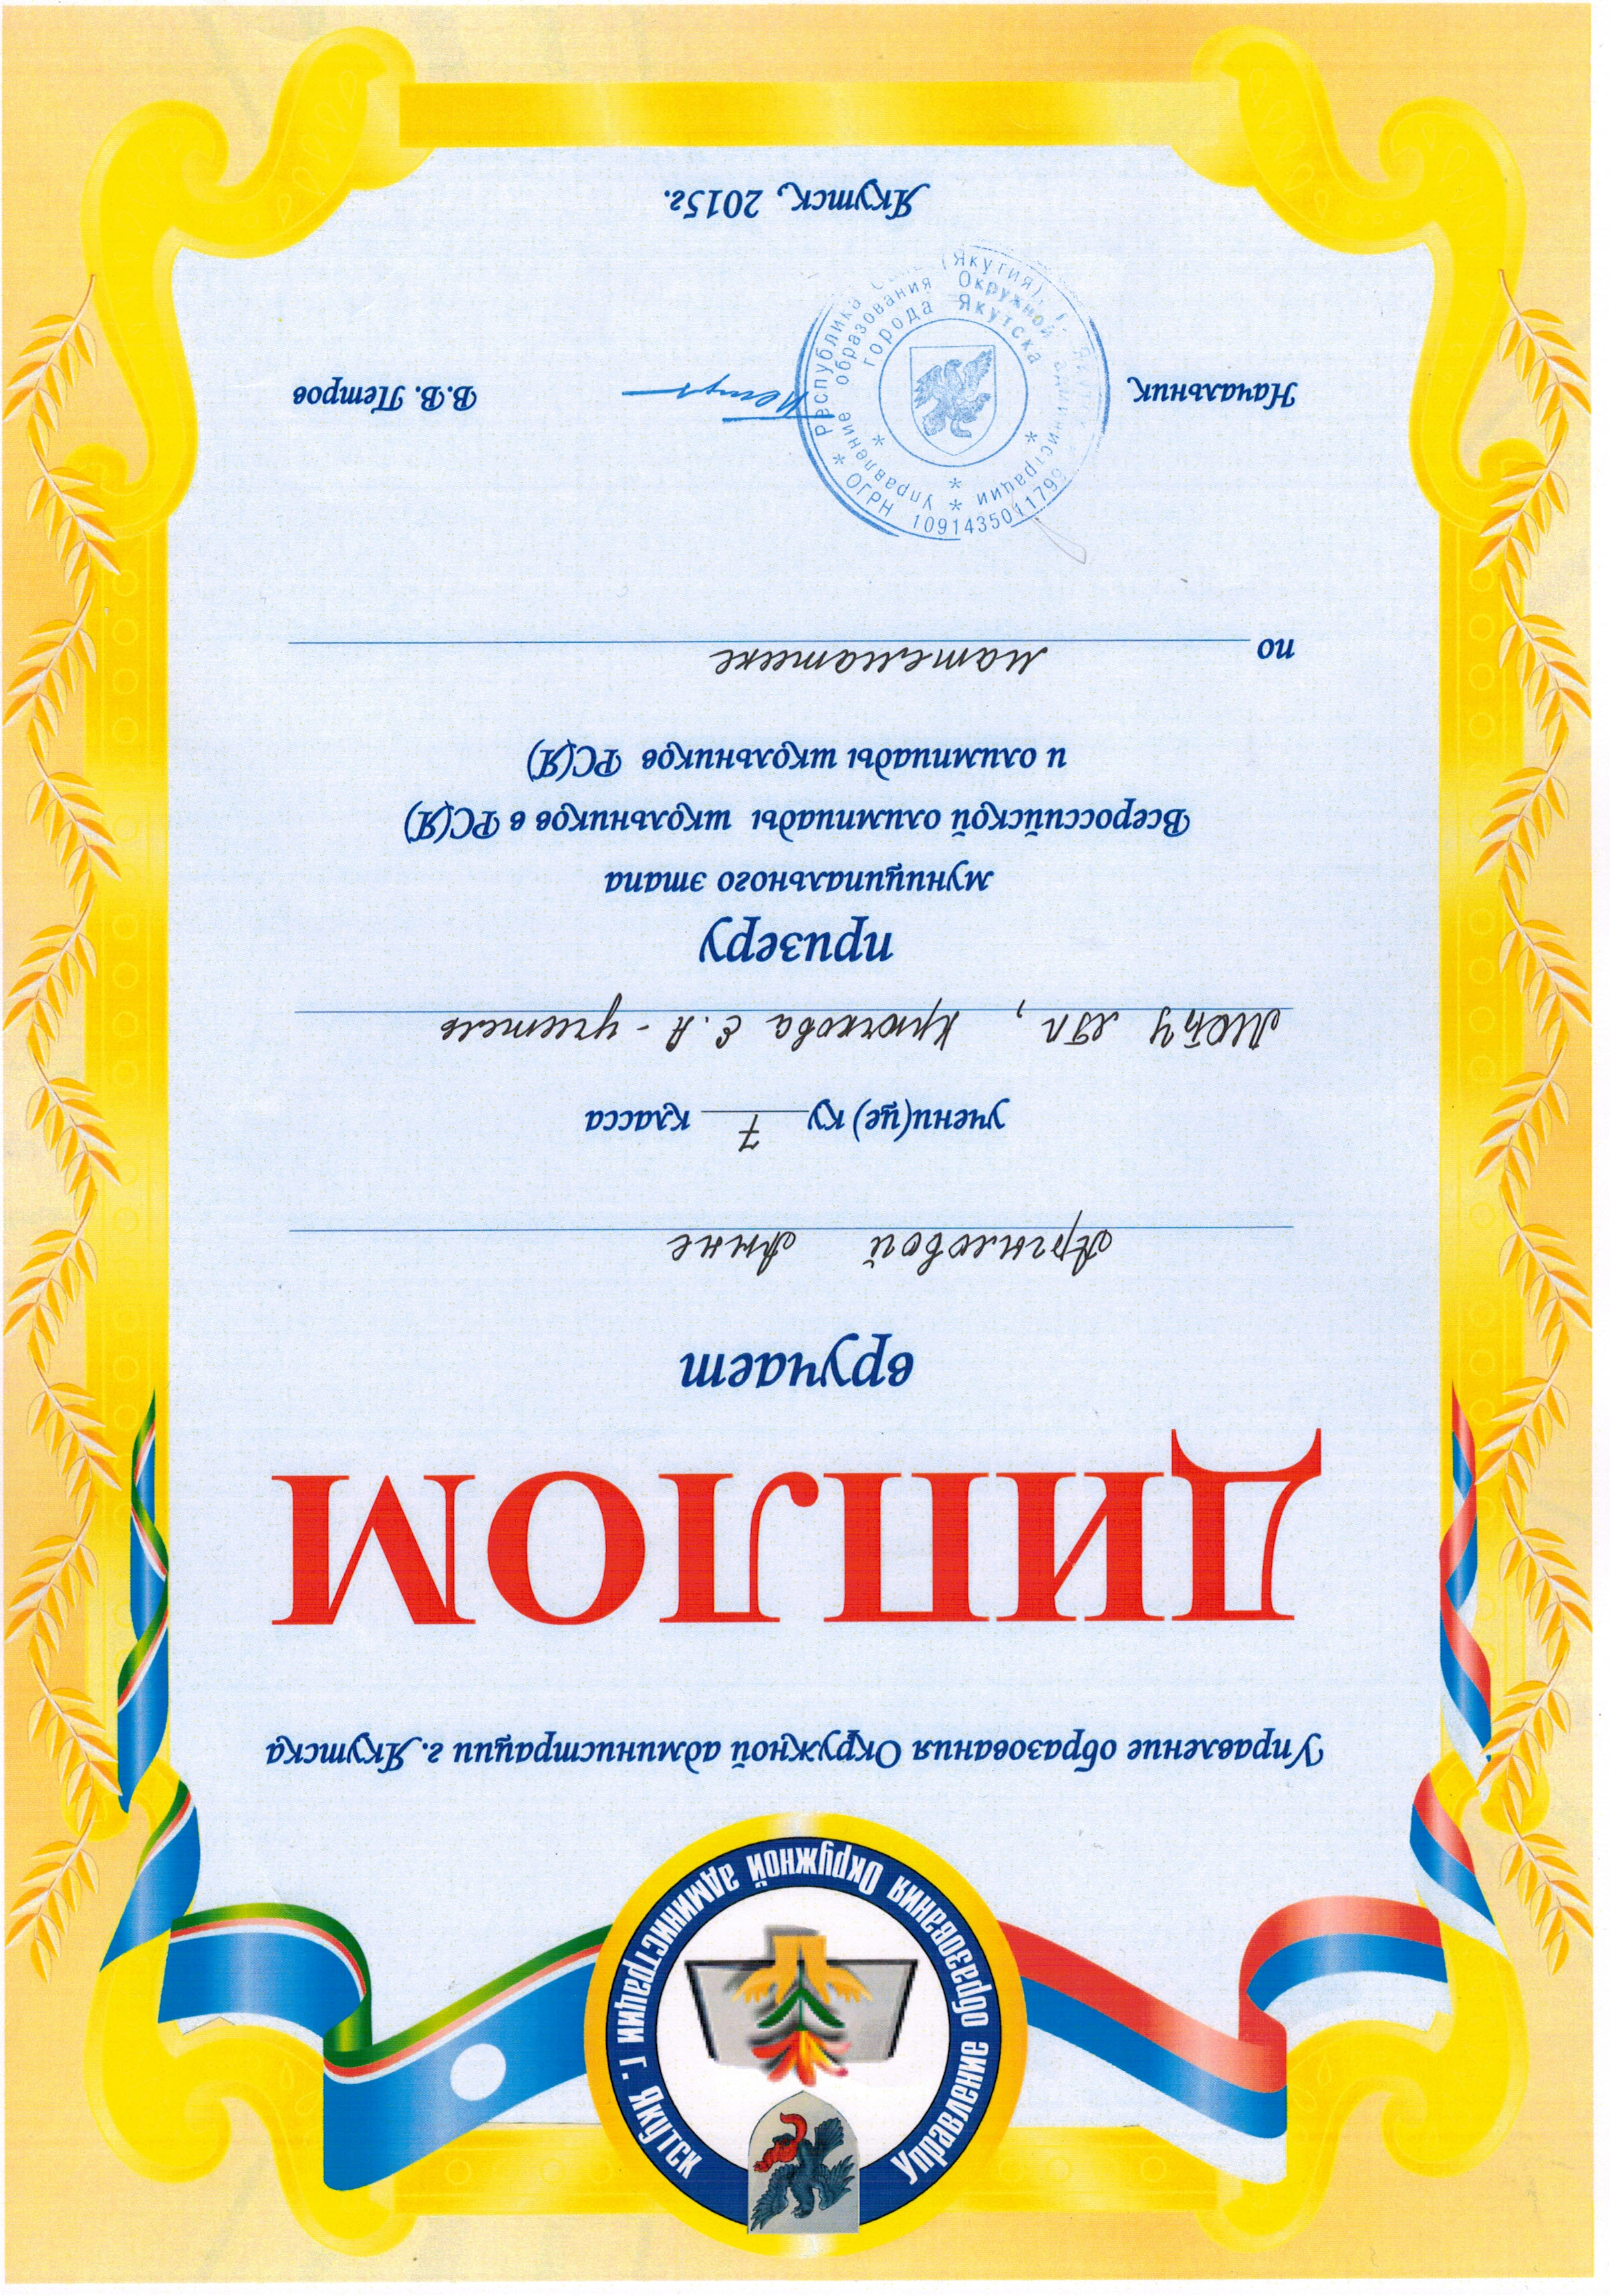 Управление образования Окружной администрации г. Якутск
Управление образования Окружной администрации г. Якутска
ДИПЛОМ
вручает
Аргыловой Анне
учени(це) ку 7 класса
МОБУ ЯГЛ, Крючкова Е.А - учитель
призеру
муниципального этапа
Всероссийской олимпиады школьников в РС(Я)
и олимпиады школьников РС(Я)
по математике
Начальник В.В. Петров
* ОГРН * Республика (Якутия)
* Управление образования Окружной администрации
города Якутска
Якутск, 2015г.